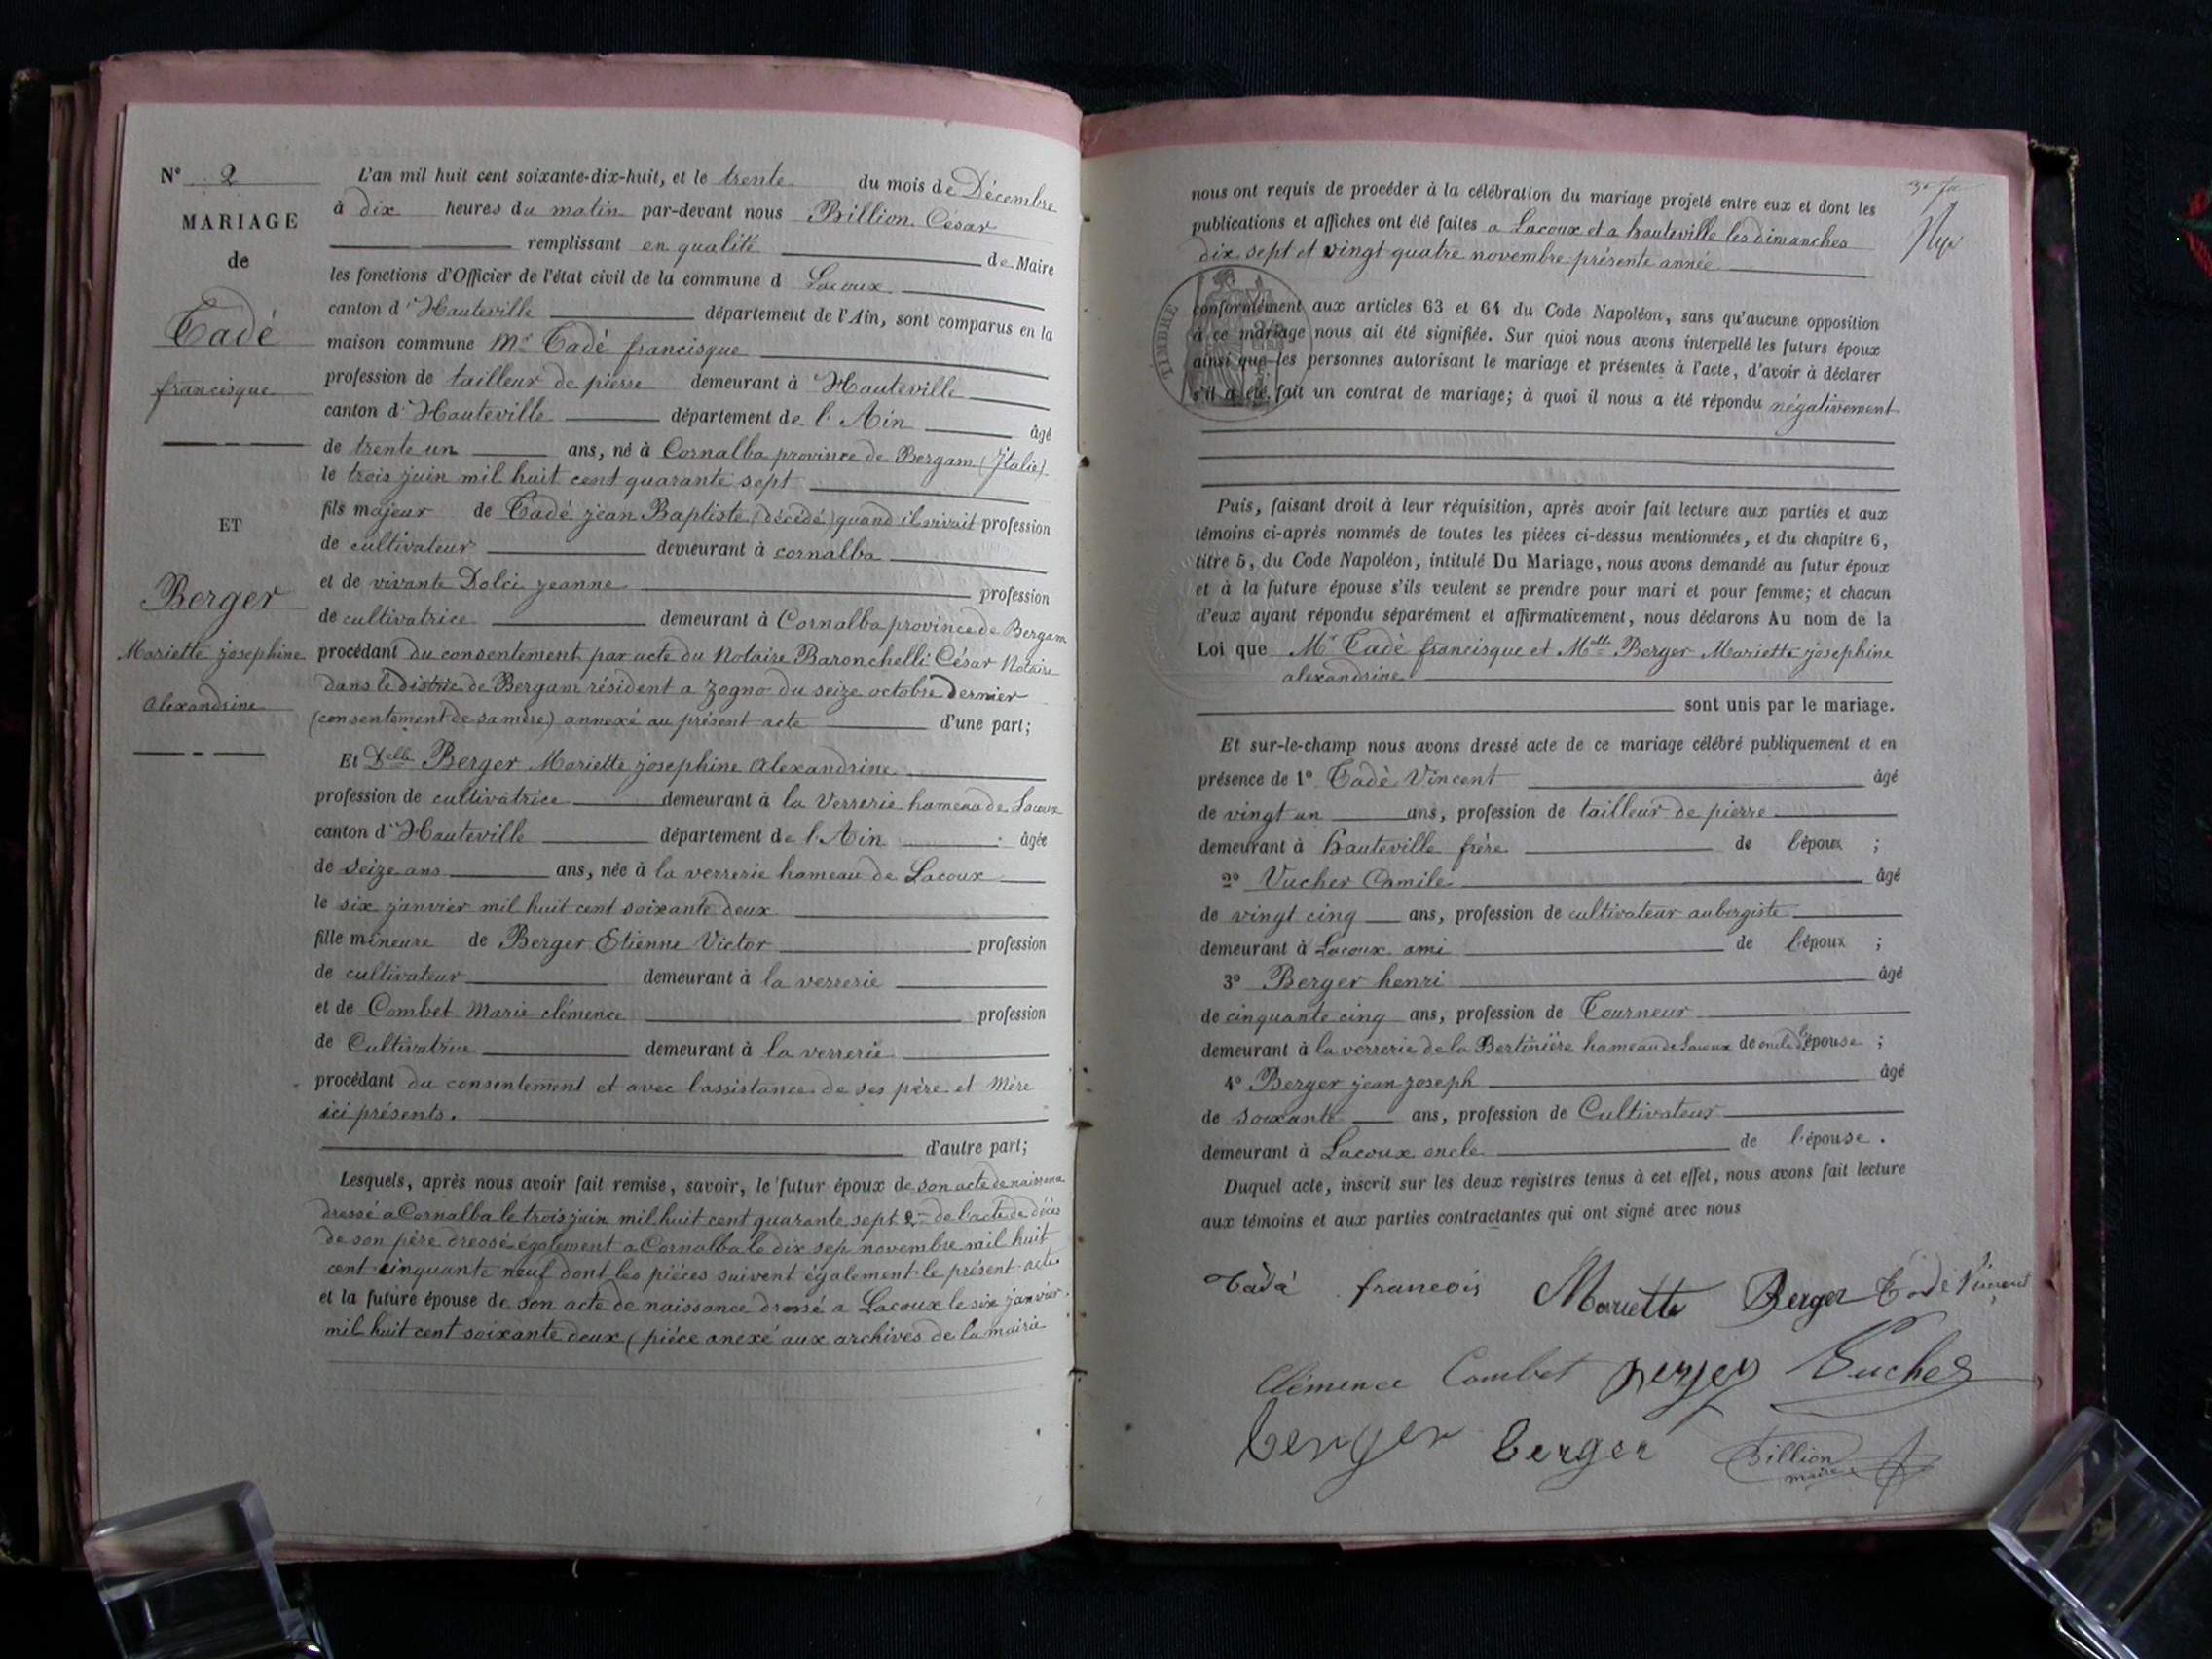 N° 2
MARIAGE
de
Tadé
francisque
ET
Berger
Mariette josephine
Alexandrine
L'an mil huit cent soixante-dix-huit, et le trente du mois de Décembre
à dix heures du matin par-devant nous Billion César
remplissant en qualité de Maire
les fonctions d'Officier de l'état civil de la commune d Lacoux
canton d'Hauteville département de l'Ain, sont comparus en la
maison commune Mr Tadé francisque
profession de tailleur de pierre demeurant à Hauteville
canton d'Hauteville département de l'Ain âgé
de trente un ans, né à Cornalba province de Bergam (Italie)
le trois juin mil huit cent quarante sept
fils majeur de Tadé jean Baptiste (décédé) quand il vivait profession
de cultivateur demeurant à cornalba
et de vivante Dolci jeanne profession
de cultivatrice demeurant à Cornalba province de Bergam
procédant du consentement par acte du Notaire Baronchelli César Notaire
dans le district de Bergam résident a Zogno du seize octobre Dernier
(consentement de sa mère) annexé au présent acte d'une part;
Et Delle Berger Mariette josephine Alexandrine
profession de cultivatrice demeurant à la Verrerie hameau de Lacoux
canton d'Hauteville département de l'Ain âgée
de seize ans ans, née à la verrerie hameau de Lacoux
le six janvier mil huit cent soixante deux
fille mineure de Berger Etienne Victor profession
de cultivateur demeurant à la verrerie
et de Combet Marie clémence profession
de Cultivatrice demeurant à la verrerie
procédant du consentement et avec l'assistance de ses père et Mère
ici présents.
d'autre part;
Lesquels, après nous avoir fait remise, savoir, le futur époux de son acte de naissance
dressé a Cornalba le trois juin mil huit cent quarante sept 2° de l'acte de décès
de son père dressé également a Cornalba le dix sep novembre mil huit
cent cinquante neuf dont les pièces suivent également le présent acte
et la future épouse de son acte de naissance dressé a Lacoux le six janvier
mil huit cent soixante deux (pièce anexé aux archives de la mairie
nous ont requis de procéder à la célébration du mariage projeté entre eux et dont les
publications et affiches ont été faites a Lacoux et a hauteville les dimanches
dix sept et vingt quatre novembre présente année
TIMBRE
conformément aux articles 63 et 64 du Code Napoléon, sans qu'aucune opposition
à ce mariage nous ait été signifiée. Sur quoi nous avons interpellé les futurs époux
ainsi que les personnes autorisant le mariage et présentes à l'acte, d'avoir à déclarer
s'il a été fait un contrat de mariage; à quoi il nous a été répondu négativement
Puis, faisant droit à leur réquisition, après avoir fait lecture aux parties et aux
témoins ci-après nommés de toutes les pièces ci-dessus mentionnées, et du chapitre 6,
titre 5, du Code Napoléon, intitulé Du Mariage, nous avons demandé au futur époux
et à la future épouse s'ils veulent se prendre pour mari et pour femme; et chacun
d'eux ayant répondu séparément et affirmativement, nous déclarons Au nom de la
Loi que Mr Tadé francisque et Melle Berger Mariette josephine
alexandrine
sont unis par le mariage.
Et sur-le-champ nous avons dressé acte de ce mariage célébré publiquement et en
présence de 1° Tadé Vincent âgé
de vingt un ans, profession de tailleur de pierre
demeurant à hauteville frère de l'époux ;
2° Vucher Camile âgé
de vingt cinq ans, profession de cultivateur aubergiste
demeurant à Lacoux ami de l'époux ;
3° Berger henri âgé
de cinquante cinq ans, profession de Tourneur
demeurant à la verrerie de la Bertinière hameau de Lacoux de oncle de l'épouse ;
4° Berger jean joseph âgé
de soixante ans, profession de Cultivateur
demeurant à Lacoux oncle de l'épouse.
Duquel acte, inscrit sur les deux registres tenus à cet effet, nous avons fait lecture
aux témoins et aux parties contractantes qui ont signé avec nous
Tadà francois Mariette Berger Tadé Vincent
Clémence Combet berger Vucher
berger berger Billion
maire